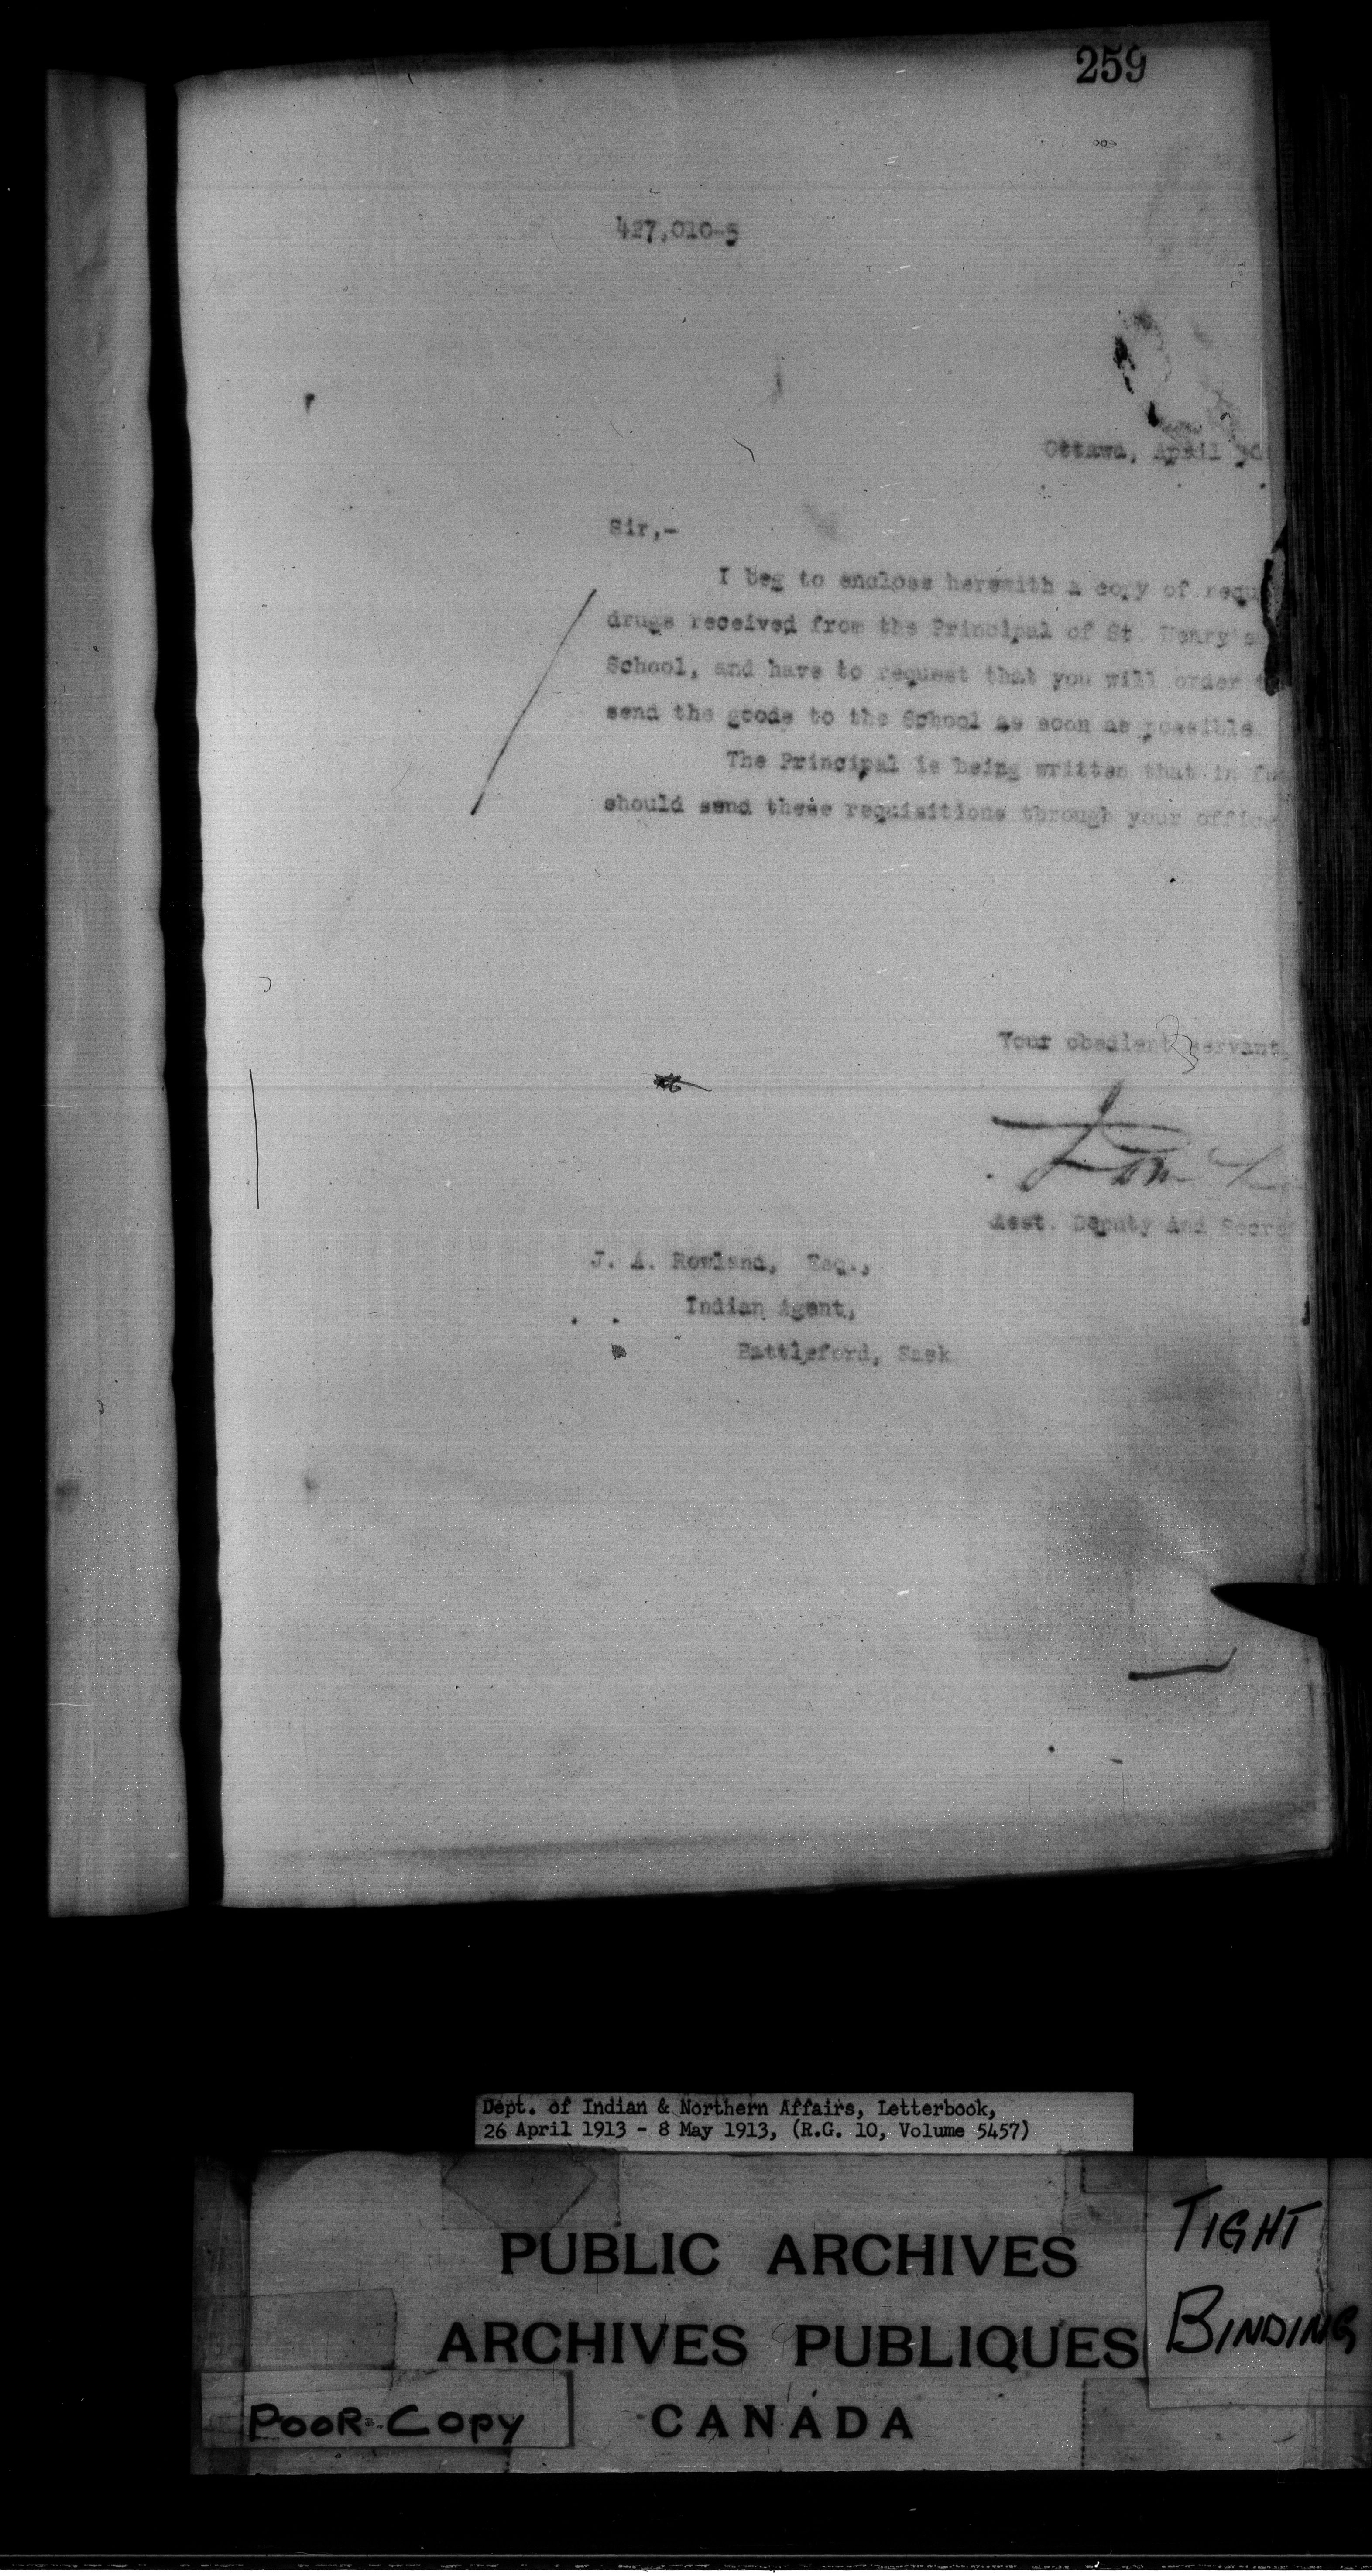 259
427,010-5
Ottawa, April 30
Sir,-
I beg to enclose herewith a copy of requ
drugs received from the Principal of St. Henry's
School, and have to request that you will order
send the goods to the School as soon as possible.
The Principal is being written that in fu
should send these requisitions through your office
Your obedient servant,
Asst. Deputy And Secre
J. A. Rowland, Esq.,
Indian Agent,
Battleford, Sask.
Dept. of Indian & Northern Affairs, Letterbook,
26 April 1913 - 8 May 1913, (R.G. 10, Volume 5457)
PUBLIC ARCHIVES
ARCHIVES PUBLIQUES
CANADA
TIGHT
BINDING
POOR COPY